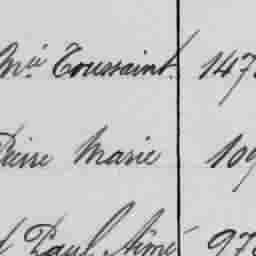 Mie Toussaint. 147
Pierre Marie 109
Paul Aimé 97